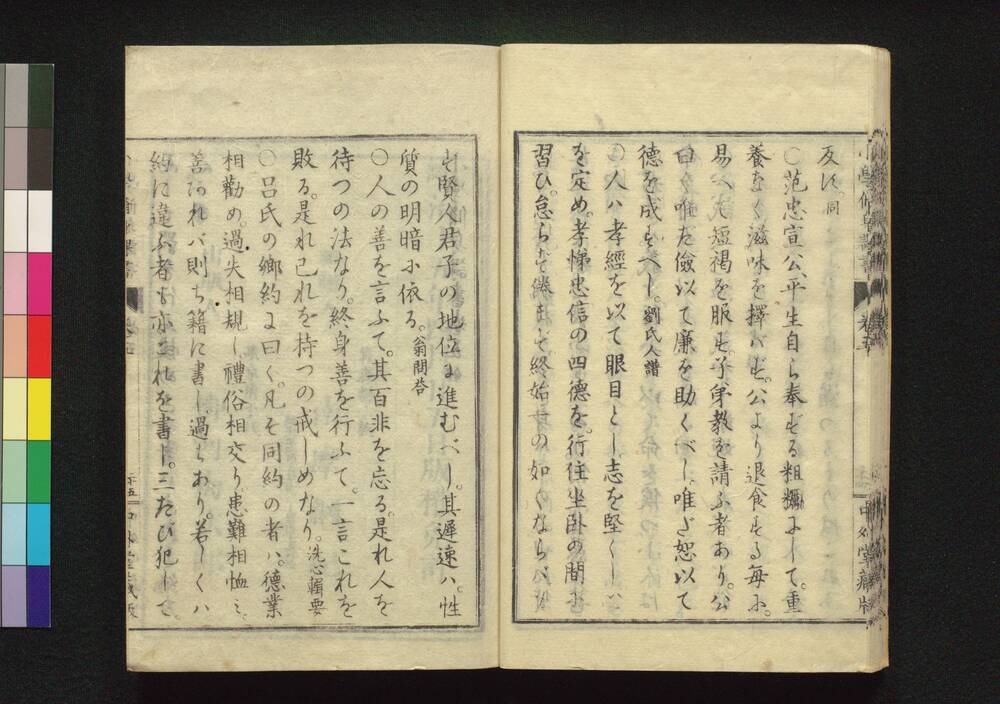 反す。同
〇范忠宣公。平生自ら奉ずる粗糲にして。重
養なく滋味を擇バず。公より退食する毎に。
易へて短褐を服す。子弟教を請ふ者あり。公
曰く唯た儉以て廉を助くべし。唯だ恕以て
德を成すべし。劉氏人譜
〇人ハ孝經を以て眼目とし。志を堅くし
を定め。孝悌忠信の四德を。行住坐臥の間に
習ひ。怠らず倦まず。終始の如くならバ
中外堂藏版
も賢人君子の地位に進むべし。其遲速ハ。性
質の明暗に依る。翁問答
〇人の善を言ふて。其百非を忘る。是れ人を
待つの法なり。終身善を行ふて。一言これを
敗る。是れ己れを持つの戒しめなり。洗心輯要
〇呂氏の鄉約に曰く。凡そ同約の者ハ。德業
相勸め。過失相規し禮俗相交り。患難相恤ミ。
善あれバ則ち籍に書し。過ちあり。若しくハ
約に違ふ者も亦これを書し。三たび犯して。